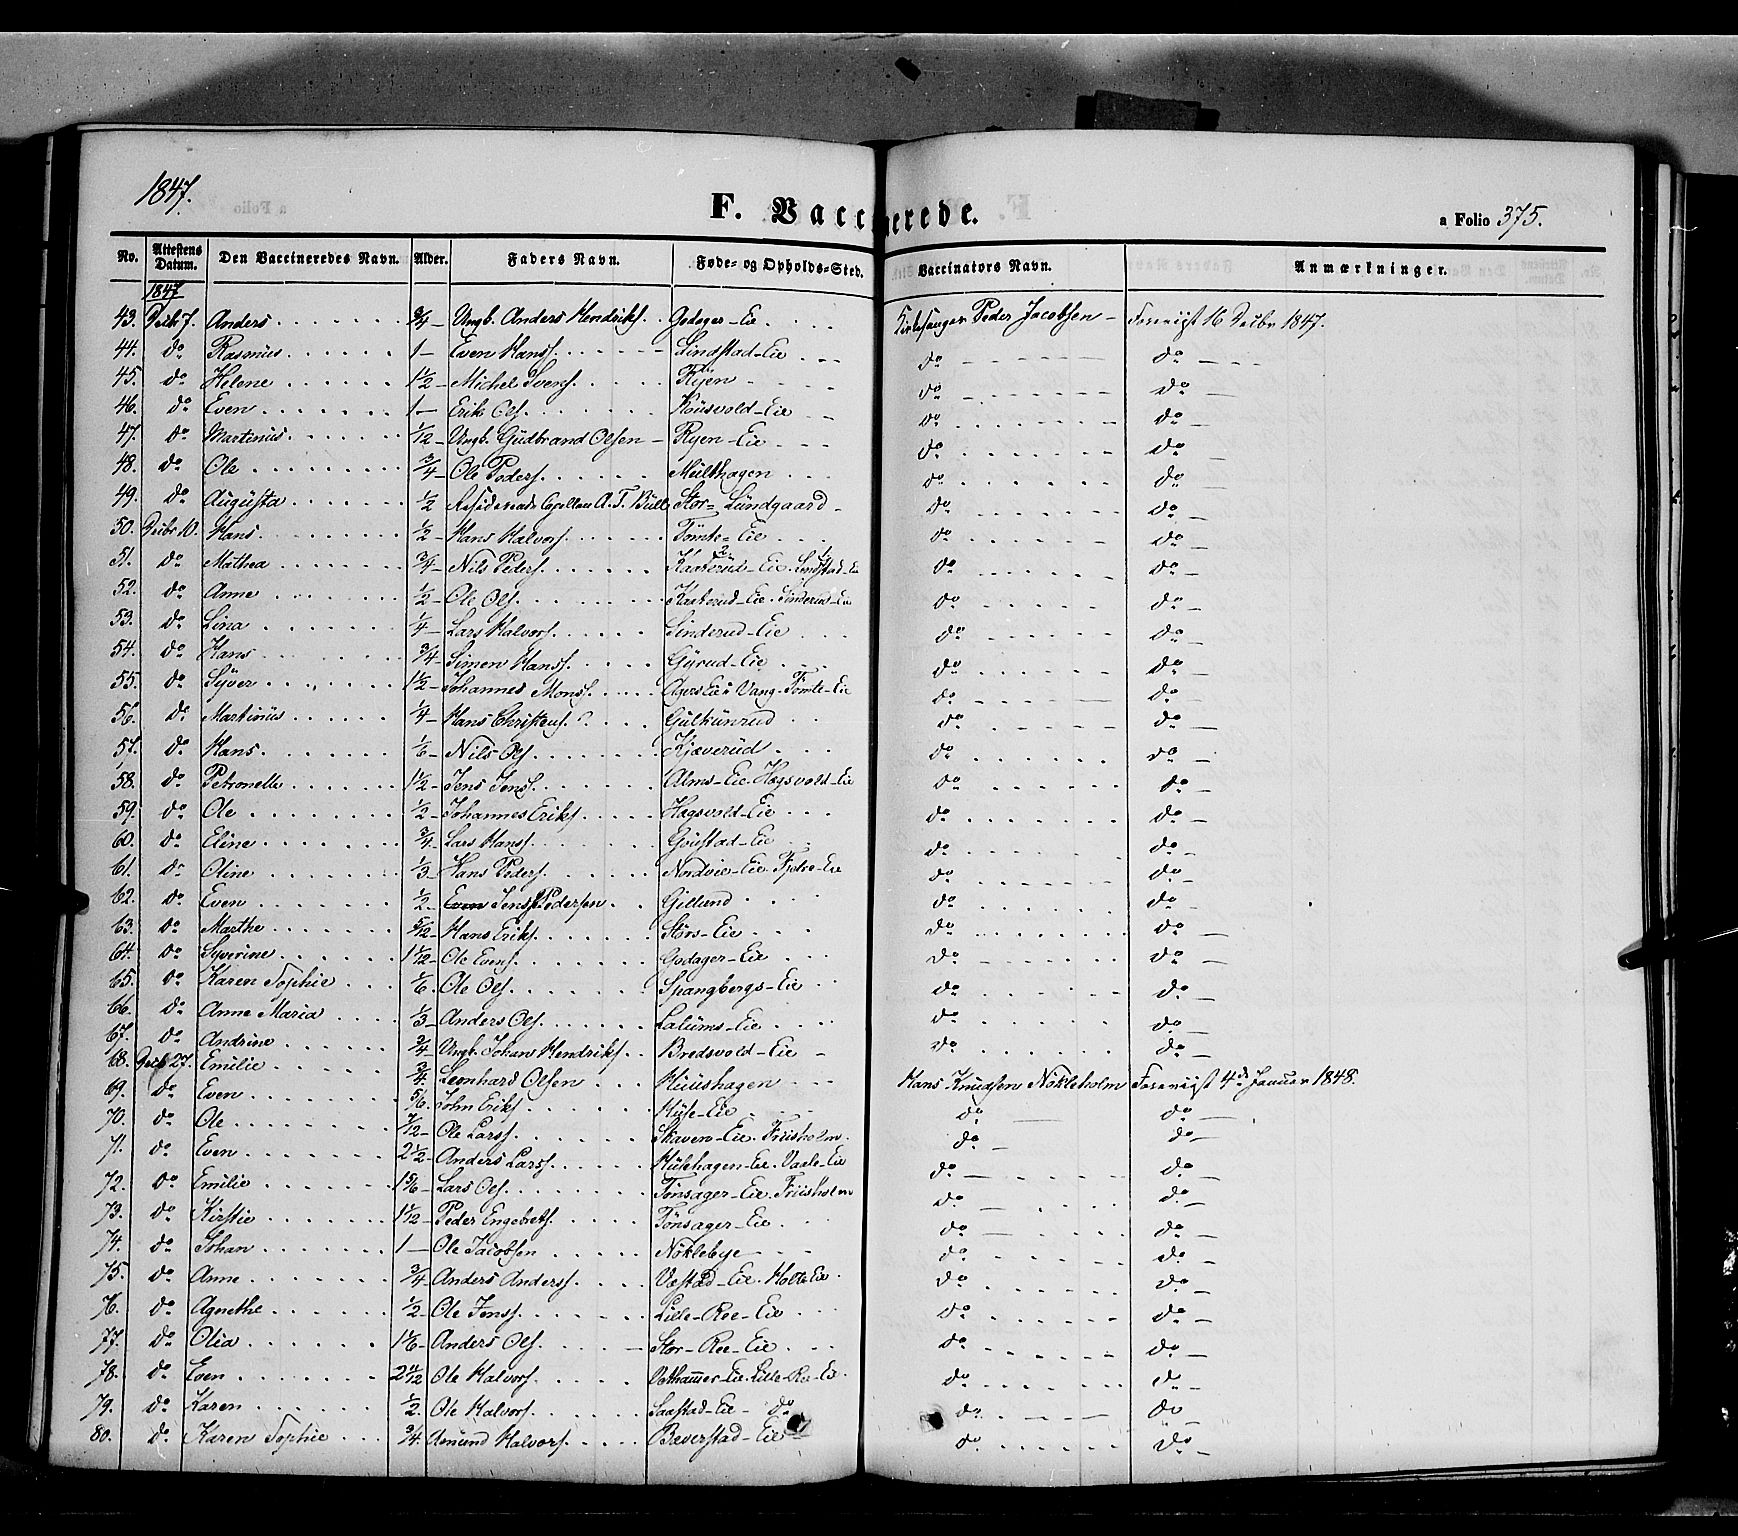 1847.
F. Vaccinerede.
a Folio 375.
No. Attestens Datum. Den Vaccineredes Navn. Alder. Faders Navn. Føde- og Opholds-Sted. Vaccinators Navn. Anmærkninger.
1847
43. Decbr 7. Anders 3/4 Ungk. Anders Hendriks. Godager-Eie Kirkesanger Peder Jacobsen Foreviist 16 Decbr 1847.
44. do Rasmus 1 Even Hans. Lindstad-Eie do do
45. do Helene 1 1/2 Michel Svens. Ryen do do
46. do Even 1 Erik Ols. Kousvold-Eie do do
47. do Martinus 1/12 Ungk. Gudbrand Olsen Ryen-Eie do do
48. do Ole 3/4 Ole Peders. Multhagen do do
49. do Augusta 1/2 Residerende Capellan A. T. Bull Stor-Lundgaard do do
50. Decbr 10. Hans 1/2 Hans Halvors. Tomte-Eie do do
51. do Mathea 3/4 Nils Peders. Kaaterud-Eie. Lindstad-Eie do do
52. do Anne 1/2 Ole Ols. Kaaterud-Eie. Sinderud-Eie do do
53. do Lina 1/4 Lars Halvors. Sinderud-Eie do do
54. do Hans 3/4 Simen Hans. Gyrud-Eie do do
55. do Syver 1 1/2 Johannes Mons. Agers Eie i Vang. Tomte-Eie do do
56. do Martinus 1/4 Hans Christens. Gulkunrud do do
57. do Hans 1/6 Nils Ols. Kjæverud do do
58. do Petronelle 1 1/2 Jens Jens. Alms-Eie. Hagsvold-Eie do do
59. do Ole 1/2 Johannes Eriks. Hagsvold-Eie do do
60. do Eline 3/4 Lars Hans. Goustad-Eie do do
61. do Oline 1/3 Hans Peders. Nordvie-Eie. Fjetre-Eie do do
62. do Even 1/2 Even Jens Pedersen Gillund do do
63. do Marthe 5/12 Hans Eriks. Stors-Eie do do
64. do Syverine 1 1/12 Ole Evens. Godager-Eie do do
65. do Karen Sophie 1/6 Ole Ols. Spangbergs-Eie do do
66. do Anne Maria 1/3 Anders Ols. Lalums-Eie do do
67. do Andrine 3/4 Ungk. Johan Hendriks. Bredsvold-Eie do do
68. Decb 27. Emilie 3/4 Leonhard Olsen Huushagen Hans Knudsen Nökleholm Foreviist 4de Januar 1848.
69. do Even 5/6 John Eriks. Hüse-Eie do do
70. do Ole 7/12 Ole Lars. Skaven-Eie. Friisholm do do
71. do Even 2 1/2 Anders Lars. Hulehagen-Eie. Vaale-Eie do do
72. do Emilie 1 5/6 Lars Ols. Tønsager-Eie. Friisholm do do
73. do Kirstie 1 1/12 Peder Engebrets. Tønsager-Eie do do
74. do Johan 1 Ole Jacobsen Nøklebye do do
75. do Anne 3/4 Anders Anders. Vestad-Eie. Holte Eie do do
76. do Agnethe 1/2 Ole Jens. Lille-Ree-Eie do do
77. do Olia 1 1/6 Anders Ols. Stor-Ree-Eie do do
78. do Even 2 4/12 Ole Halvors. Vethammer-Eie. Lille-Re-Ei. do do
79. do Karen 1/2 Ole Halvors. Saastad-Eie do do do
80. do Karen Sophie 3/4 Asmund Halvors. Bæverstad-Eie do do